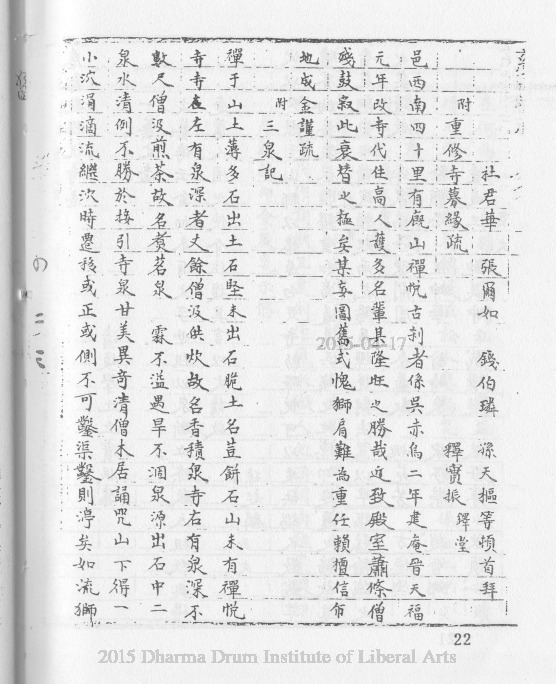 杜君華 張爾如 錢伯璘 孫天樞等頓首拜
附重修寺募緣疏 釋實振 璍堂
邑西南四十里有廄山禪悅古刹者係吳赤烏二年建庵晉天福
元年改寺代住高人護多名輩其隆旺之勝哉近致殿室蕭條僧
殘鼓寂此衰替之極矣某妄圖舊式愧獅肩難為重任賴檀信布
地成金謹疏
附三泉記
彈于山土薄多石出土石堅未出石脆土名荳餅石山未有禪悅
寺寺左有泉深者丈餘僧汲供炊故名香積泉寺右有泉深不
數尺僧汲煎茶故名煑茗泉 霖不溢遇旱不涸泉源出石中二
泉水清例不勝於接引寺泉甘美異奇清僧木居誦咒山下得一
小沈涓滴流繼次時遷移或正或側不可鑿渠鑿則渟矣如流獅
22
2015-04-17
2015 Dharma Drum Institute of Liberal Arts